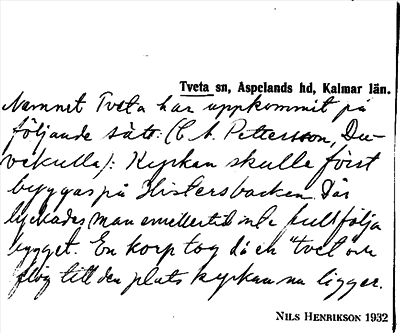 Tveta sn, Aspelands hd, Kalmar län.
Namnet Tveta har uppkommit på
följande sätt: (C A. Pettersson, Du-
vekulla): Kyrkan skulle först
byggas på Klistersbacken. Där
lyckades man emellertid inte fullfölja
bygget. En korp tog då en "tvet och
flög till den plats kyrkan nu ligger.
NILS HENRIKSON 1932